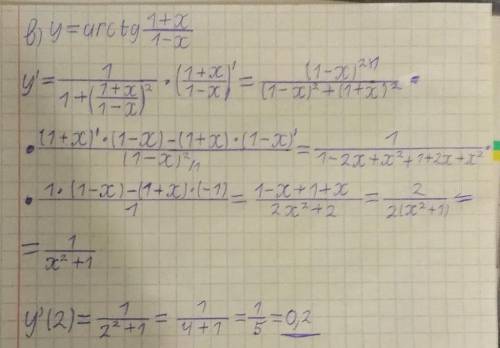 в) y = arctg (1+x)/(1-x)
y' = 1/(1+((1+x)/(1-x))²) • ((1+x)/(1-x))' = (1-x)²/((1-x)²+(1+x)²) •
• ((1+x)'•(1-x)-(1+x)•(1-x)')/(1-x)² = 1/(1-2x+x²+1+2x+x²) •
• (1•(1-x)-(1+x)•(-1))/1 = (1-x+1+x)/(2x²+2) = 2/(2(x²+1)) =
= 1/(x²+1)
y'(2) = 1/(2²+1) = 1/(4+1) = 1/5 = 0,2